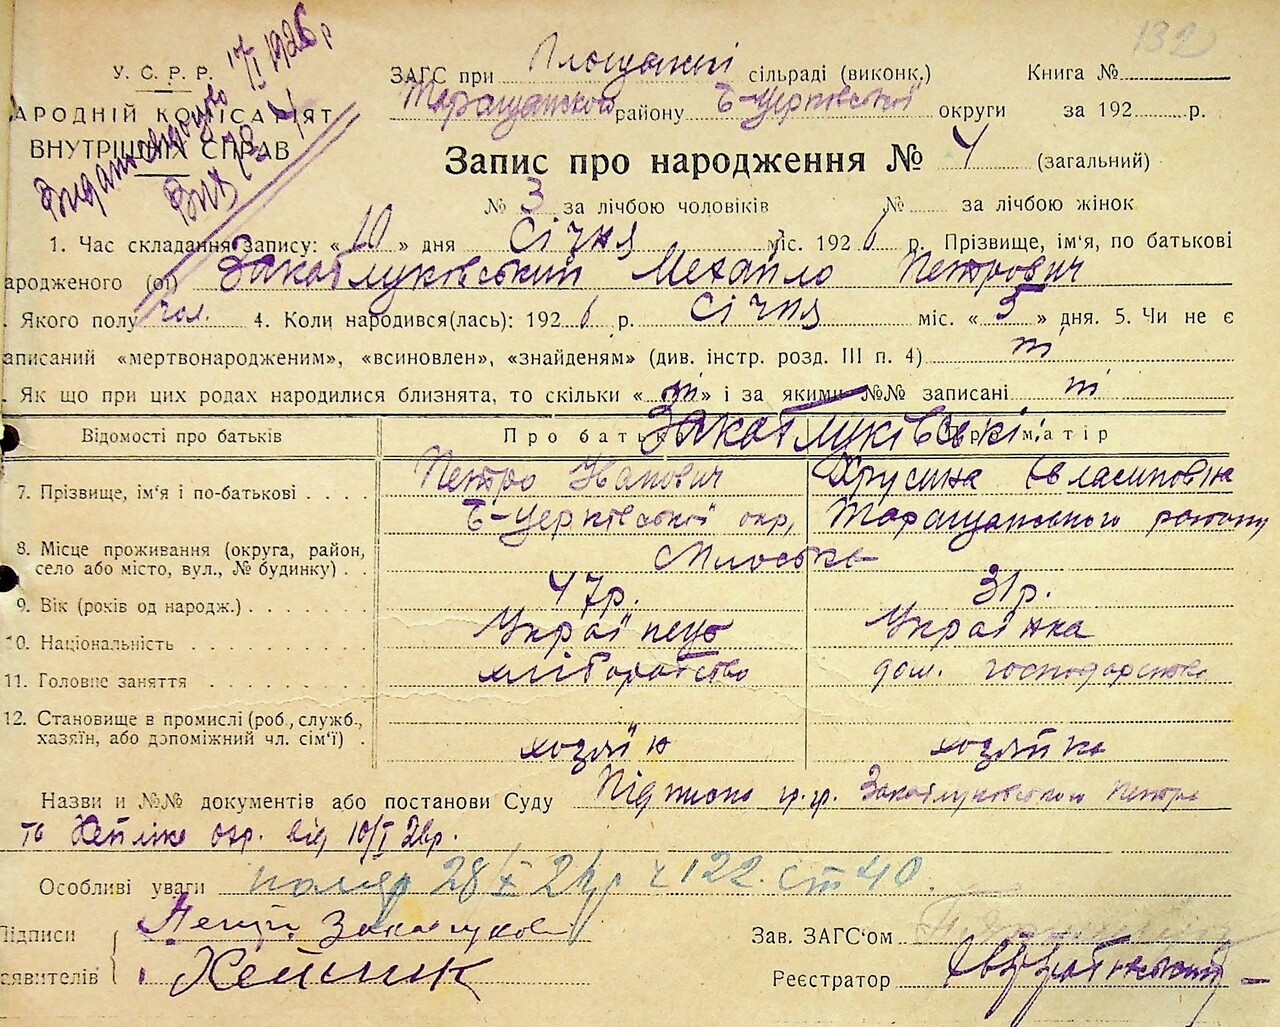 132
У.С.Р.Р.
АРОДНІЙ КОМІСАРІЯТ
ВНУТРІШНІХ СПРАВ
17/I 1926 р
ЗАГС при сільраді (виконк.) Книга №
Таращанского району Б-Церковської округи за 192 р.
Запис про народження № 4 (загальний)
№ 3 за лічбою чоловіків № за лічбою жінок
1. Час складання запису: « 10 » дня Січня міс. 1926 р. Прізвище, ім'я, по батькові
ародженого (ої) Закатлуківський Михайло Петрович
Якого полу чол. 4. Коли народився(лась): 1926 р. Січня міс. « 5 » дня. 5. Чи не є
аписаний «мертвонародженим», «всиновлен», «знайденям» (див. інстр. розд. III п. 4)
Як що при цих родах народилися близнята, то скільки « » і за якими №№ записані
Закатлуківські
Відомості про батьків Про батька Про матір
7. Прізвище, ім'я і по-батькові Петро Іванович Хрусина
Б-Церківської окр, Таращанського району
8. Місце проживання (округа, район,
село або місто, вул., № будинку)
9. Вік (років од народж.) 47р. 31р.
10. Національність Українець Українка
11. Головне заняття хліборобство дом. господарство
12. Становище в промислі (роб., служб.,
хазяїн, або допоміжний чл. сім'ї) хозяїн хозяйка
Назви и №№ документів або постанови Суду Підписка гр.гр. Закатлуківського Петра
та від 10/I 26р.
Особливі уваги 28/X ч 122. ст 40.
ідписи
аявителів
Зав. ЗАГС'ом
Реєстратор